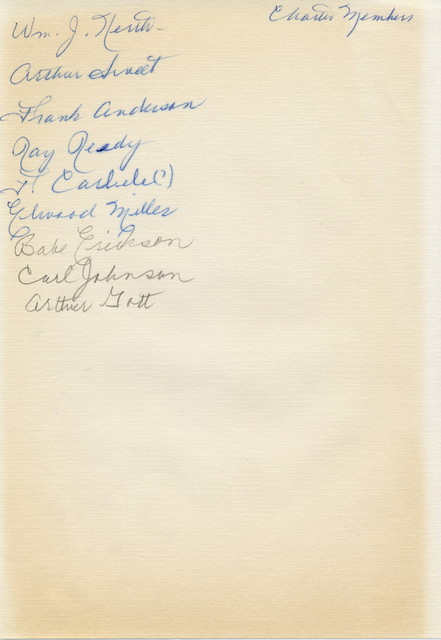 Charter Members
Wm. J.
Arthur Sweet
Frank Anderson
Ray Ready
Elwood Miller
Babe Erickson
Carl Johnson
Arthur Gott